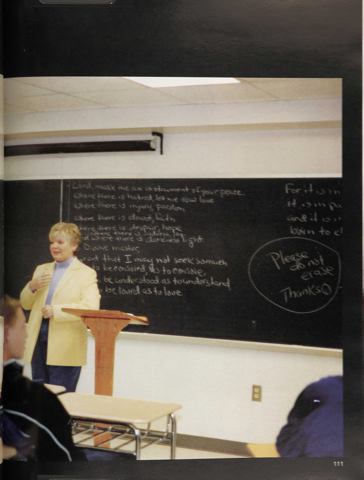 Lord, make me an instrument of your peace.
Where there is hatred, let me sow love
Where there is injury, pardon
Where there is doubt, faith
Where there is despair, hope
where there is sadness, joy
and where there is darkness light.
O Divine master,
grant that I may not seek so much
to be consoled, as to console,
to be understood as to understand
to be loved as to love
For it is in
it is in
and it is
born to
Please
do not
erase
Thanks
111